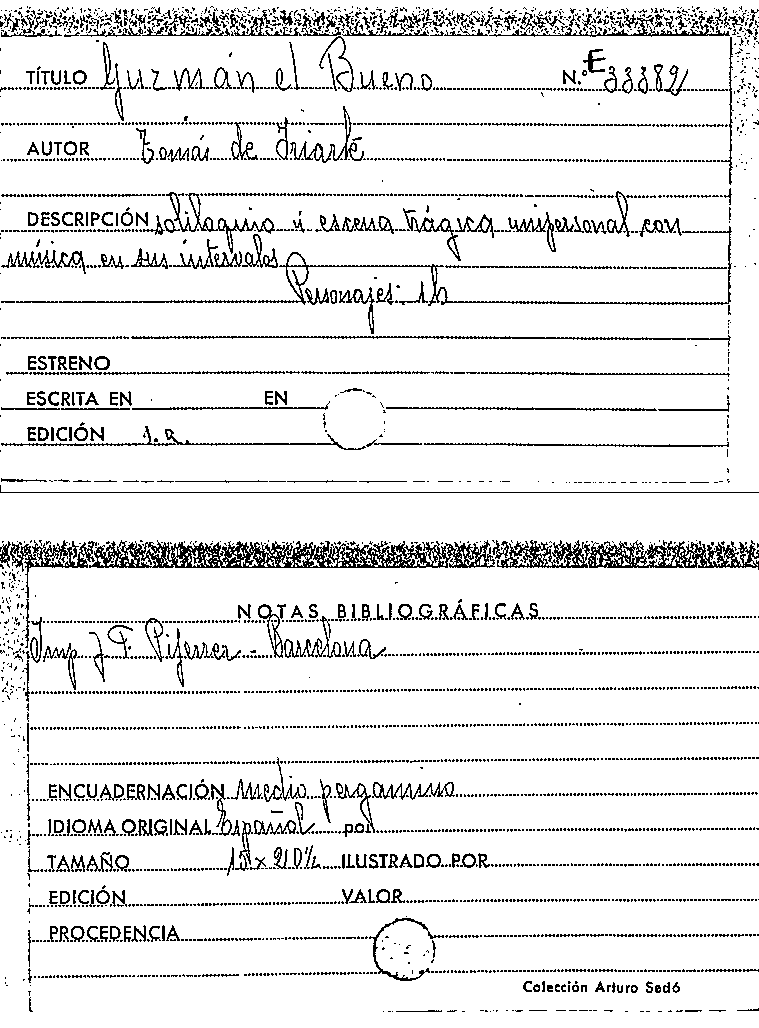 TÍTULO Guzmán el Bueno N.º E 33389
AUTOR Tomás de Iriarte
DESCRIPCIÓN soliloquio ú escena trágica unipersonal con
música en sus intervalos
Personajes: 1h
ESTRENO
ESCRITA EN EN
EDICIÓN
NOTAS BIBLIOGRÁFICAS
Imp J. F. Piferrer - Barcelona
ENCUADERNACIÓN medio pergamino
IDIOMA ORIGINAL Español por
TAMAÑO ILUSTRADO POR
EDICIÓN VALOR
PROCEDENCIA
Colección Arturo Sedó